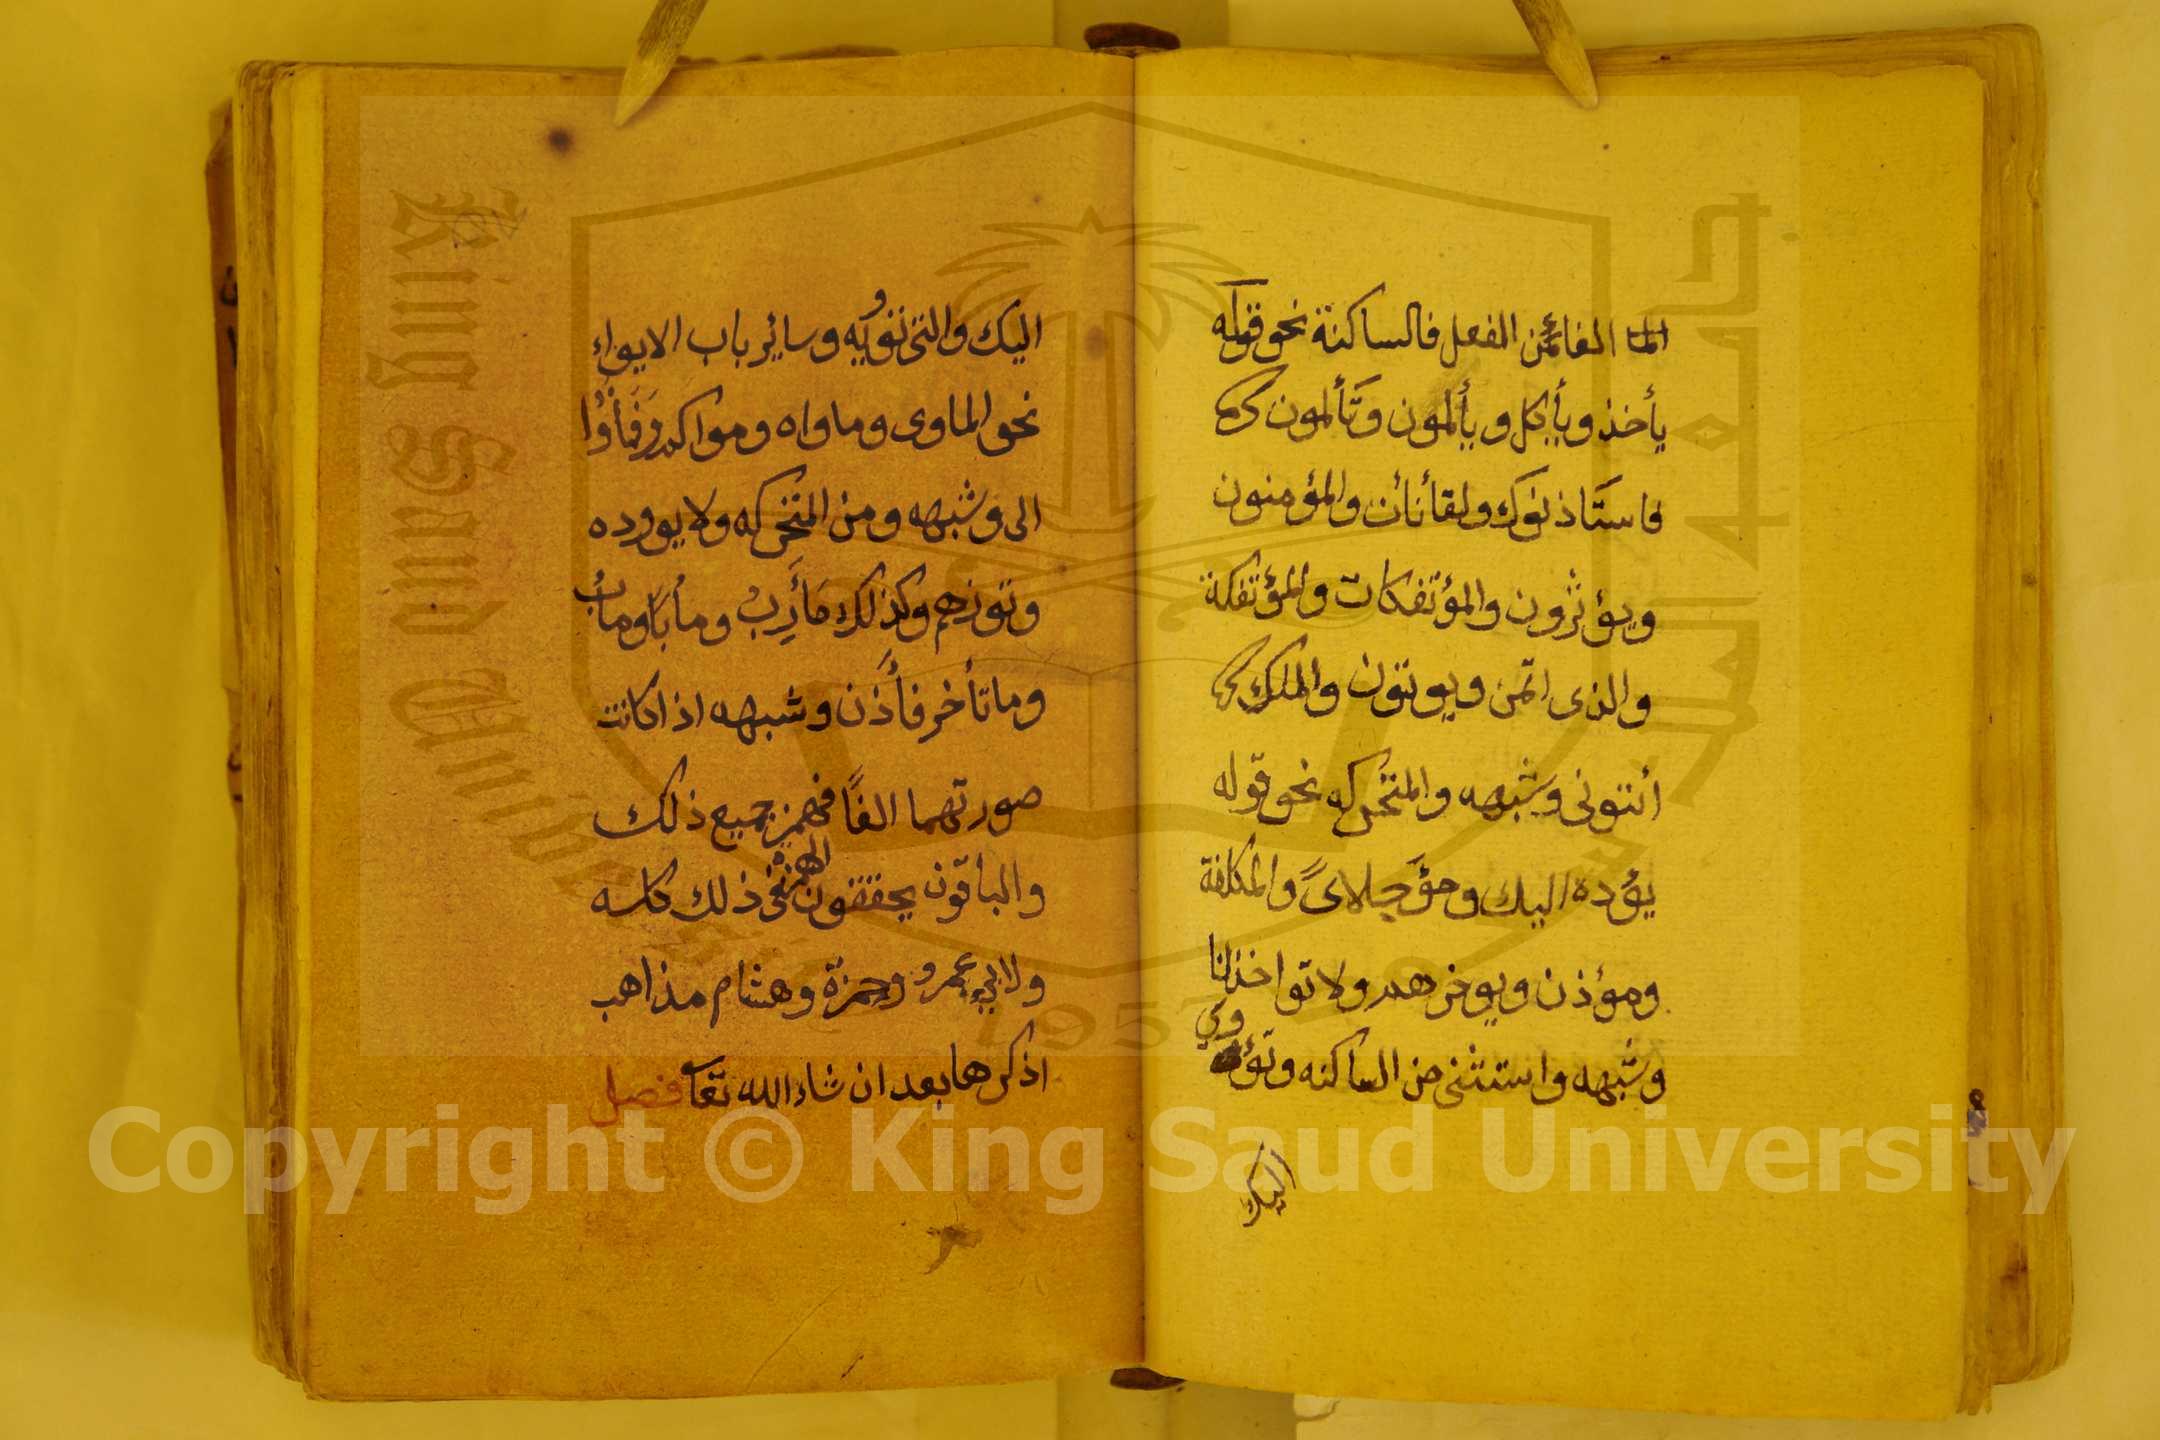 الفا من الفعل فالساكنة نحو قوله
يأخذ ويأكل ويألمون وتألمون
فاستأذنوك ولقأنا أت والمؤمنون
ويؤثرون والمؤتفكات والمؤتفكة
والذى اتمن ويوتون والملك
أئتونى وشبهه والمتحركه نحو قوله
يؤده اليك ومؤجلا لاى والمؤلفة
ومؤذن ويوخرهم ولا تواخذنا
وشبهه واستثنى من الساكنه وتؤوي
اليك
اليك والتى تؤويه وساير باب الايواء
نحو الماوى وماواه وماواكم فأوا
الى وشبهه ومن المتحركه ولا يووده
وتوزهم وكذلك مأرب ومأبا وماب
وما تأخر فأذن وشبهه اذا كانت
صورتهما الفا فهمز جميع ذلك
والباقون يحققون الهمزة فى ذلك كله
ولابي عمرو وحمزة وهشام مذاهب
اذكرها بعد ان شاء الله تعا فصل
King Saud University
جامعة الملك سعود
1957
Copyright © King Saud University